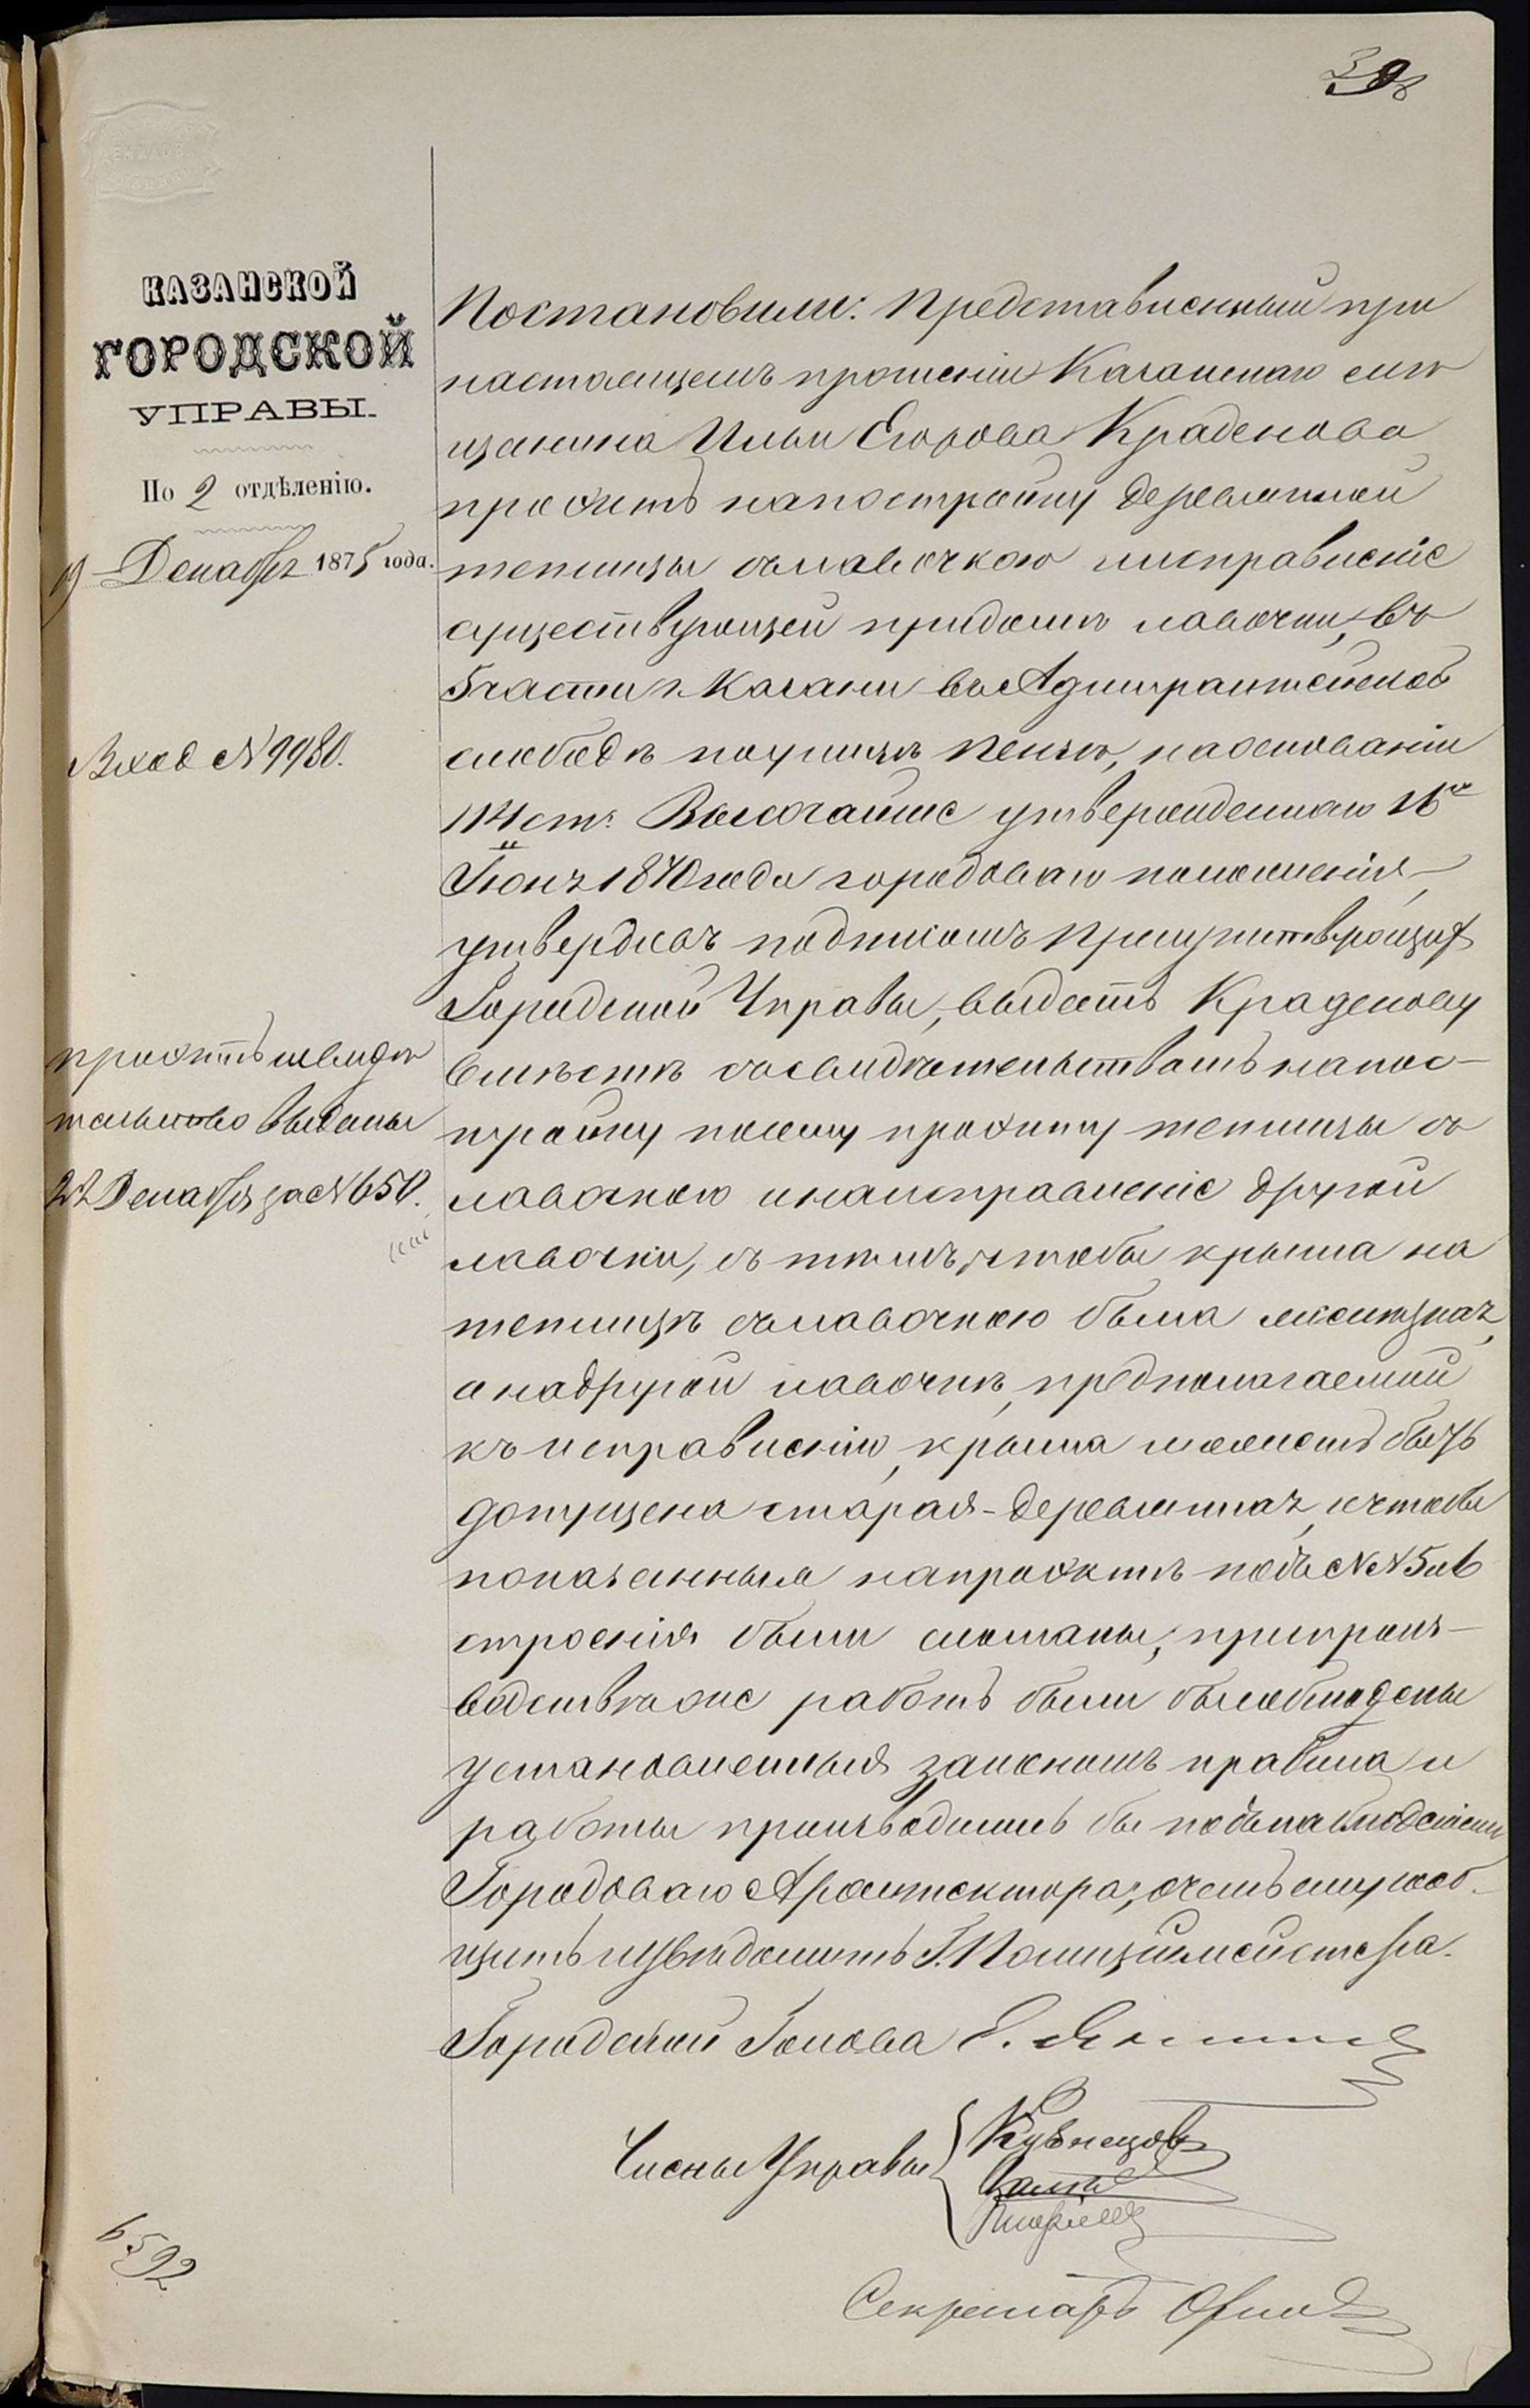 39
КАЗАНСКОЙ
ГОРОДСКОЙ
УПРАВЫ.
По 2 отдѣленію.
19 Декабря 1875 года.
Вход №9980.
проэктъ и свидѣ
тельство выданы
22 Декабря за №650.
Постановили: Представленный при
настоящемъ прошеніи Казанскаго мѣ
щанина Ильи Егорова Краденова
проэктъ на постройку деревянной
теплицы съ лавочкою и исправленіе
существующей при домѣ лавочки, въ
5 части г. Казани въ Адмиралтейской
слободѣ по улицѣ, на основаніи
114 ст. Высочайше утвержденнаго 16го
Іюня 1870 года городоваго положенія,
утвердивъ подписомъ Присутствующих
Городской Управы, выдать Краденову
вмѣстѣ съ свидѣтельствомъ на пос-
тройку по сему проэкту теплицы съ
лавочкою и на исправленіе другой
лавочки, съ тѣмъ, чтобы крыша на
теплицѣ съ лавочкою была желѣзная,
а на другой лавочкѣ, предполагаемой
къ исправленію, крыша можетъ быть
допущена старая-деревянная, и чтобы
показанныя на проэктѣ подъ №№ 5 и 6
строенія были сломаны, при произ-
водствѣ же работъ были бы соблюдены
установленныя закономъ правила и
работы производились бы подъ наблюденіем
Городоваго Архитектора, о чемъ ему сооб-
щить и увѣдомить Г. Полицiймейстера.
Городской Голова
Члены Управы
Кузнецовъ
Секретарь
6592